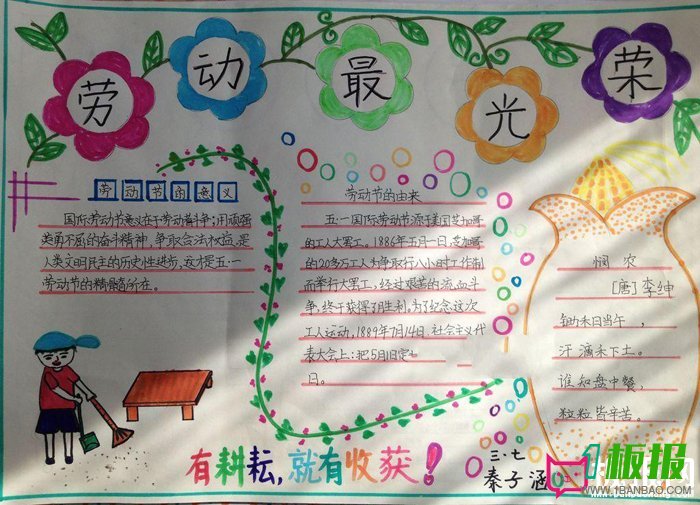 劳动最光荣
劳动节的意义
国际劳动节意义在于劳动者斗争;用顽强
英勇不屈的奋斗精神,争取合法权益,是
人类文明民主的历史性进步,这才是五·一
劳动节的精髓所在。
劳动节的由来
五·一国际劳动节源于美国芝加哥
的工人大罢工。1886年五月一日,芝加哥
的20多万工人为争取行八小时工作制
而举行大罢工,经过艰苦的流血斗
争,终于获得了胜利。为了纪念这次
工人运动,1889年7月14日,社会主义代
表大会上:把5月1日定
日。
悯农
[唐]李绅
锄禾日当午,
汗滴禾下土。
谁知盘中餐,
粒粒皆辛苦。
有耕耘,就有收获!
三·七
秦子涵
1板报
WWW.1BANBAO.COM